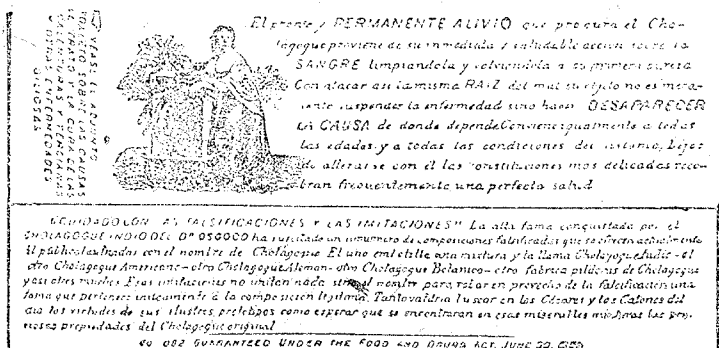 VEASE EL ADJUNTO
FOLLETO SOBRE LAS CAUSAS
Y TRATO Y LA CURA DE LAS
CALENTURAS Y REMITANTES
Y OTRAS ENFERMEDADES
BILIOSAS
El pronto y PERMANENTE ALIVIO que procura el Cho-
lagogue proviene de su inmediata y saludable accion sobre la
SANGRE limpiandola y volviendola a su primera pureza
Con atacar asi la misma RAIZ del mal su objeto no es mera-
mente suspender la enfermedad sino hacer DESAPARECER
LA CAUSA de donde depende. Conviene igualmente a todas
las edades y a todas las condiciones del Lejos
de alterarse con el las constituciones mas delicadas reco-
bran frecuentemente una perfecta salud
"CUIDADO CON LAS FALSIFICACIONES Y LAS IMITACIONES" La alta fama conquistada por el
CHOLAGOGUE INDIO DEL Dr OSGOOD ha suscitado un sinnumero de composiciones falsificadas que se ofrecen actualmente
al publico con el nombre de Cholagogue El uno embotella una mixtura y la llama Cholagogue Indio - el
otro Cholagogue Americano - otro Cholagogue Aleman - otro Cholagogue Botanico - otro fabrica pildoras de Cholagogue
y asi otros muchos Esas imitaciones no imitan nada sino el nombre para volar en provecho de la falsificacion una
fama que pertenece unicamente á la composicion legitima Tanto valdria buscar en los Césares y los Catones del
dia las virtudes de sus ilustres prototipos como esperar que se encontraran en esas miserables mixturas las pre-
ciosas propiedades del Cholagogue original
GUARANTEED UNDER THE FOOD AND DRUGS ACT, JUNE 30, 1906